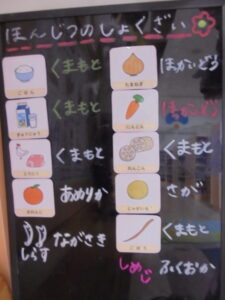 ほんじつのしょくざい
ごはん くまもと
ぎゅうにゅう くまもと
とりにく くまもと
オレンジ あめりか
しらす ながさき
たまねぎ ほっかいどう
にんじん ほっかいどう
れんこん くまもと
じゃがいも さが
ごぼう くまもと
しめじ ふくおか